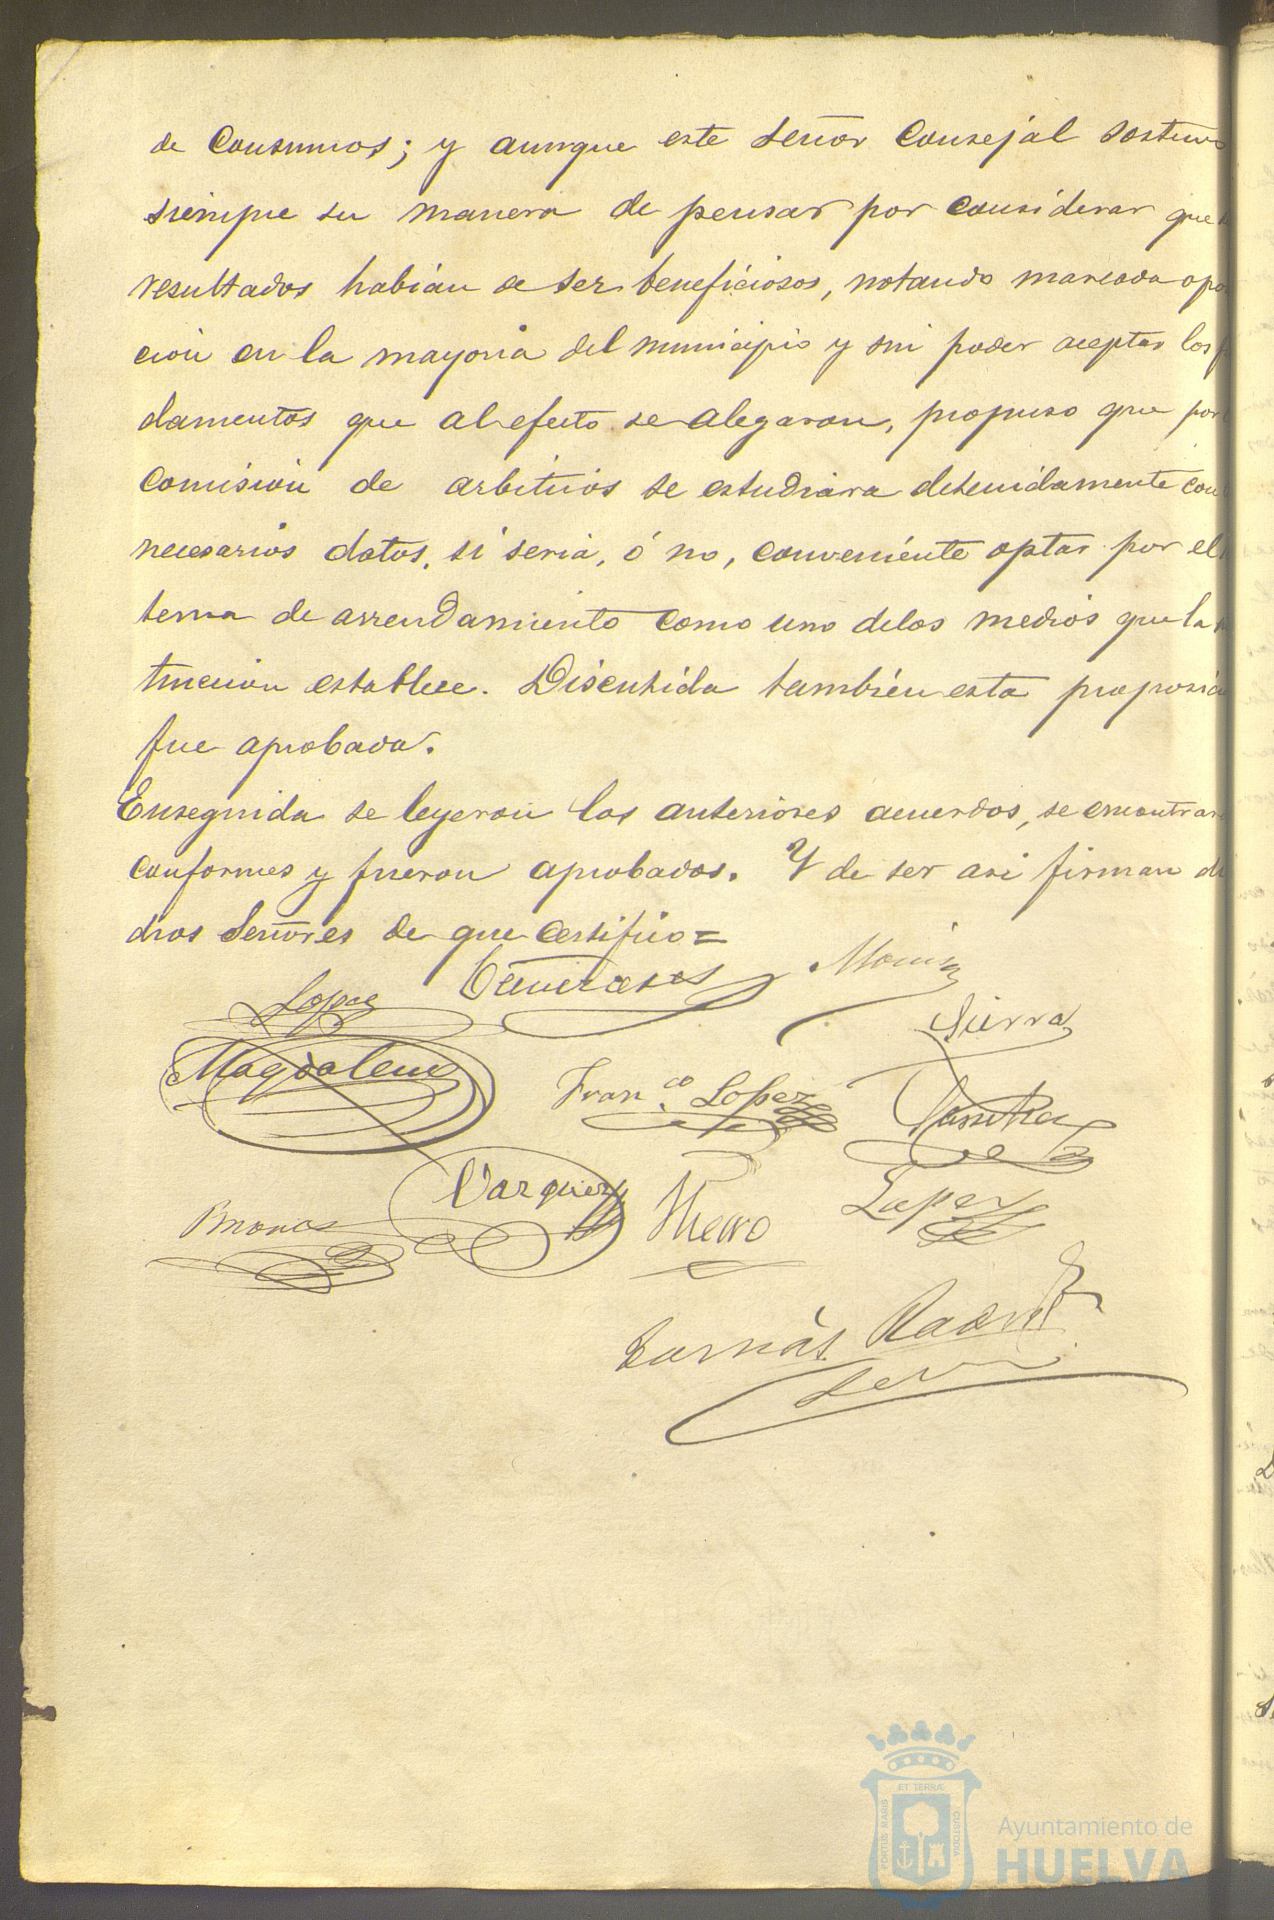 de Consumos; y aunque este Señor Consejal sostuvo
siempre su manera de pensar por considerar que
resultados habian de ser beneficiosos, notando marcada opo
cion en la mayoria del municipio y sin poder aceptar los
damentos que al efecto se alegaron, propuso que por
comision de arbitrios se estudiara detenidamente con
necesarios datos, si seria, ó no, conveniente optar por el
tema de arrendamiento como uno delos medios que la
truccion establece. Discutida tambien esta proposic
fue aprobada.
Enseguida se leyeron los anteriores acuerdos, se encontrar
conformes y fueron aprobados. Y de ser asi firman di
chos Señores de que certifico=
Lopez
Sierra
Magdalena
Fran.co Lopez
Vazquez
Lopez
PORTUS MARIS ET TERRAE CUSTODIA
Ayuntamiento de
HUELVA